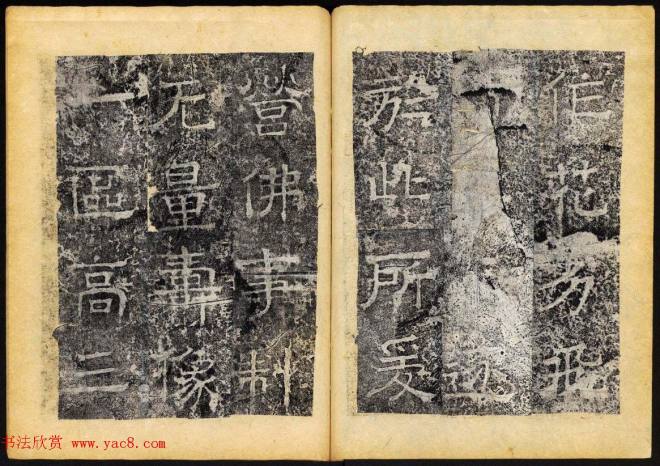 作花飛
於此所爰
營佛事制
无量壽像
一區高三
书法欣赏 www.yac8.com